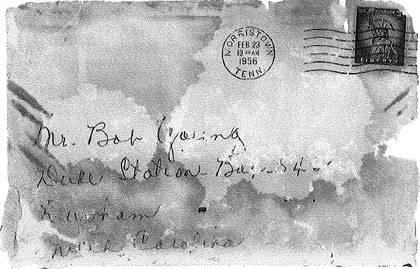 MORRISTOWN
FEB 23
10 AM
1956
TENN.
Mr. Bob
Duke Station Box
Durham
North Carolina